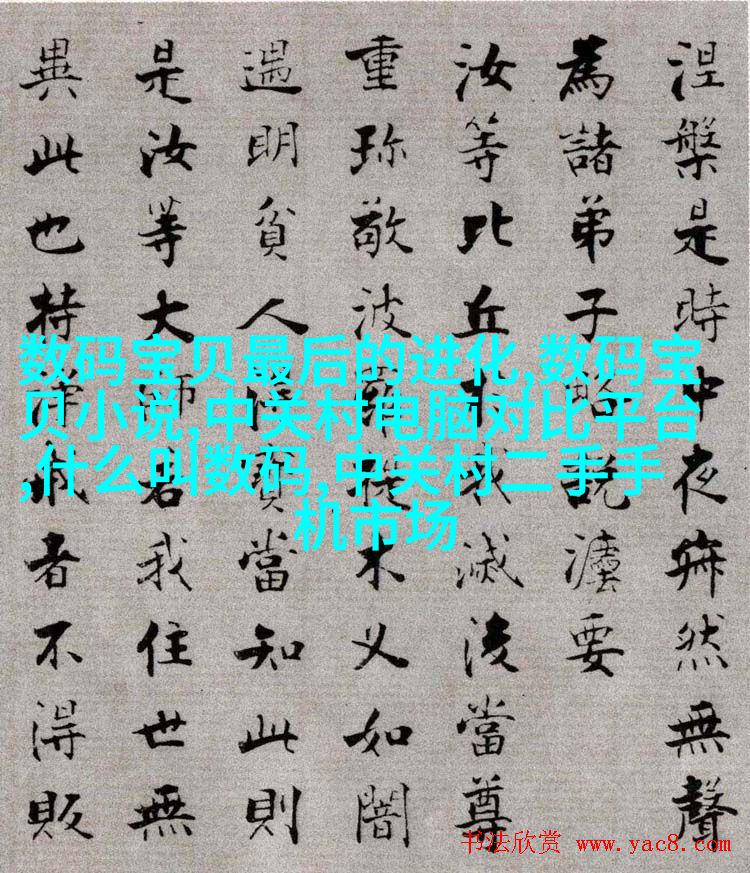 涅槃是時中夜寂然無聲
為諸弟子略說灋要
汝等比丘我滅後當尊
重珍敬波羅提木叉如闇
遇明貧人得寶當知此則
是汝等大師若我住世無
異此也持淨戒者不得販
数码宝贝最后的进化,数码宝
贝小说,中关村电脑对比平台
,什么叫数码,中关村二手手
机市场
书法欣赏 www.yac8.com